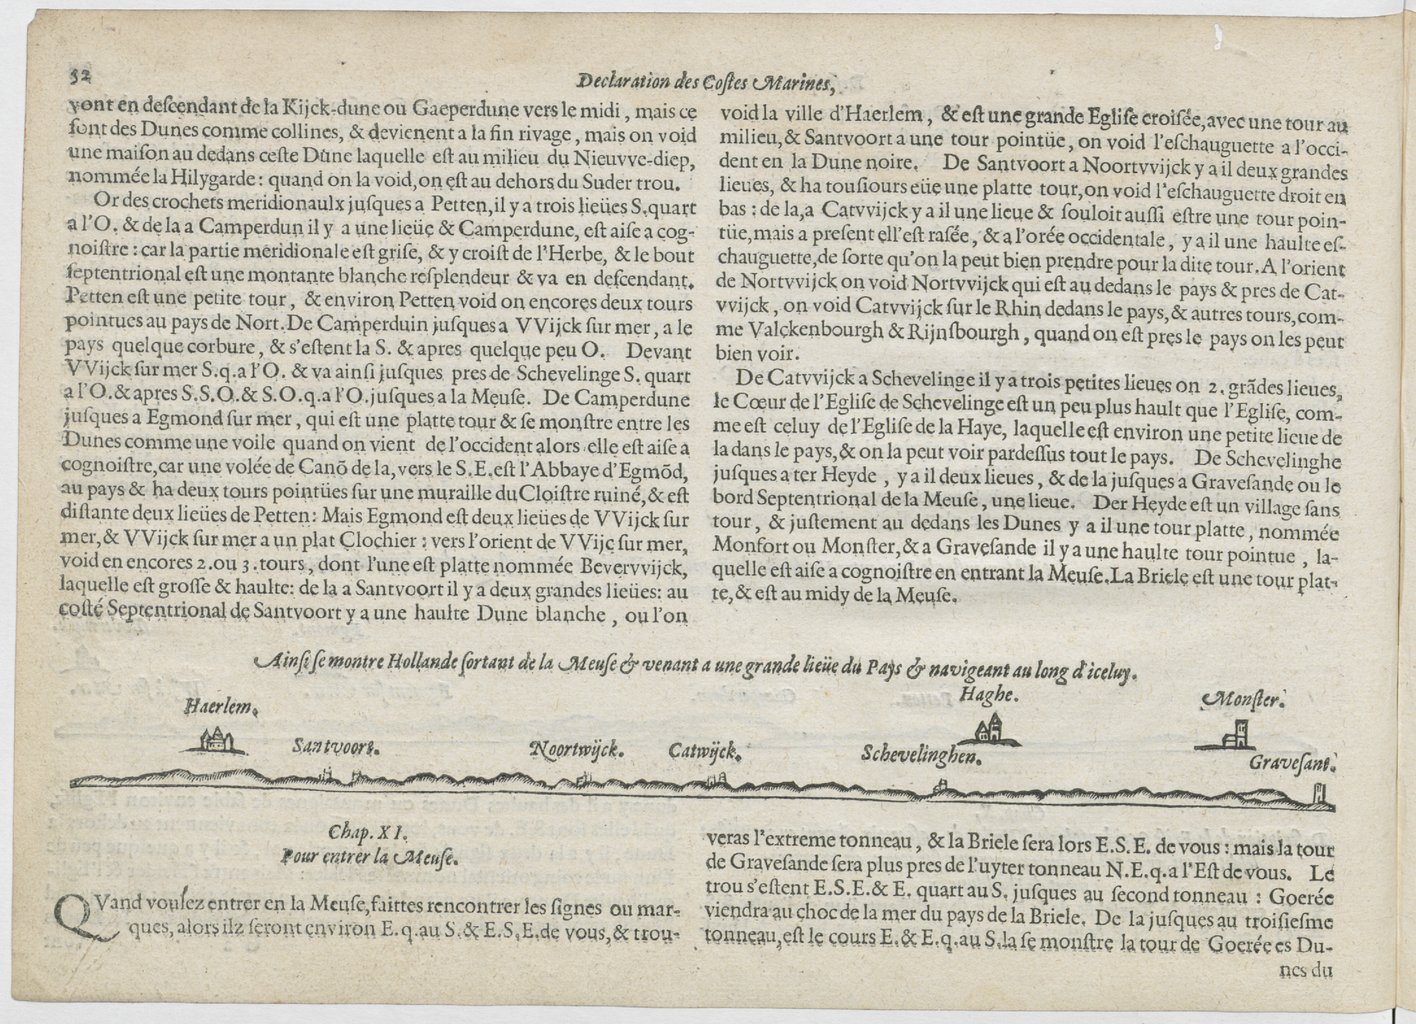 52
Declaration des Costes Marines,
vont en descendant de la Kijck-dune ou Gaeperdune vers le midi, mais ce
sont des Dunes comme collines, & devienent a la fin rivage, mais on void
une maison au dedans ceste Dune laquelle est au milieu du Nieuvve-diep,
nommée la Hilygarde: quand on la void, on est au dehors du Suder trou.
Or des crochets meridionaulx jusques a Petten, il y a trois lieües S. quart
a l'O. & de la a Camperdun il y a une lieüe & Camperdune, est aise a cog-
noistre: car la partie meridionale est grise, & y croist de l'Herbe, & le bout
septentrional est une montante blanche resplendeur & va en descendant.
Petten est une petite tour, & environ Petten void on encores deux tours
pointues au pays de Nort. De Camperduin jusques a VVijck sur mer, a le
pays quelque corbure, & s'estent la S. & apres quelque peu O. Devant
VVijck sur mer S.q.a l'O. & va ainsi jusques pres de Schevelinge S. quart
a l'O. & apres S.S.O. & S.O.q.a l'O. jusques a la Meuse. De Camperdune
jusques a Egmond sur mer, qui est une platte tour & se monstre entre les
Dunes comme une voile quand on vient de l'occident alors elle est aise a
cognoistre, car une volée de Canō de la, vers le S.E. est l'Abbaye d'Egmōd,
au pays & ha deux tours pointües sur une muraille du Cloistre ruiné, & est
distante deux lieües de Petten: Mais Egmond est deux lieües de VVijck sur
mer, & VVijck sur mer a un plat Clochier: vers l'orient de VVijc sur mer,
void en encores 2. ou 3. tours, dont l'une est platte nommée Bevervvijck,
laquelle est grosse & haulte: de la a Santvoort il y a deux grandes lieües: au
costé Septentrional de Santvoort y a une haulte Dune blanche, ou l'on
void la ville d'Haerlem, & est une grande Eglise croisée, avec une tour au
milieu, & Santvoort a une tour pointüe, on void l'eschauguette a l'occi-
dent en la Dune noire. De Santvoort a Noortvvijck y a il deux grandes
lieues, & ha tousiours eüe une platte tour, on void l'eschauguette droit en
bas: de la, a Catvvijck y a il une lieue & souloit aussi estre une tour poin-
tüe, mais a present ell'est rasée, & a l'orée occidentale, y a il une haulte es-
chauguette, de sorte qu'on la peut bien prendre pour la dite tour. A l'orient
de Nortvvijck on void Nortvvijck qui est au dedans le pays & pres de Cat-
vvijck, on void Catvvijck sur le Rhin dedans le pays, & autres tours, com-
me Valckenbourgh & Rijnsbourgh, quand on est pres le pays on les peut
bien voir.
De Catvvijck a Schevelinge il y a trois petites lieues on 2. grādes lieues,
le Cœur de l'Eglise de Schevelinge est un peu plus hault que l'Eglise, com-
me est celuy de l'Eglise de la Haye, laquelle est environ une petite lieue de
la dans le pays, & on la peut voir pardessus tout le pays. De Schevelinghe
jusques a ter Heyde, y a il deux lieues, & de la jusques a Gravesande ou le
bord Septentrional de la Meuse, une lieue. Der Heyde est un village sans
tour, & justement au dedans les Dunes y a il une tour platte, nommée
Monfort ou Monster, & a Gravesande il y a une haulte tour pointue, la-
quelle est aise a cognoistre en entrant la Meuse. La Briele est une tour plat-
te, & est au midy de la Meuse.
Ainsi se montre Hollande sortant de la Meuse & venant a une grande lieüe du Pays & navigeant au long d'iceluy.
Haerlem.
Haghe.
Monster.
Santvoort.
Noortwijck.
Catwijck.
Schevelinghen.
Gravesant.
Chap. XI.
Pour entrer la Meuse.
QVand voulez entrer en la Meuse, faittes rencontrer les signes ou mar-
ques, alors ilz seront environ E.q.au S. & E.S.E. de vous, & trou-
veras l'extreme tonneau, & la Briele sera lors E.S.E. de vous: mais la tour
de Gravesande sera plus pres de l'uyter tonneau N.E.q.a l'Est de vous. Le
trou s'estent E.S.E. & E. quart au S. jusques au second tonneau: Goerée
viendra au choc de la mer du pays de la Briele. De la jusques au troisiesme
tonneau, est le cours E. & E.q.au S. la se monstre la tour de Goerée es Du-
nes du